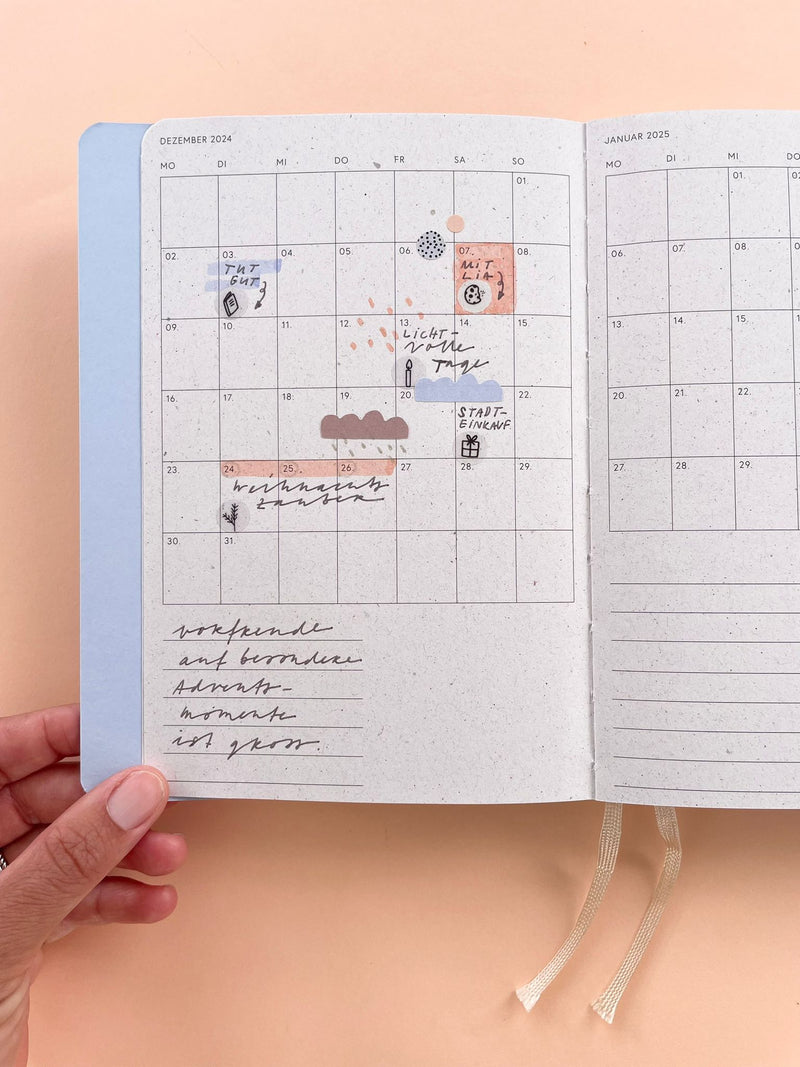 DEZEMBER 2024
MO DI MI DO FR SA SO
01.
02. 03. 04. 05. 06. 07. 08.
TUT
GUT
MIT
LIA
09. 10. 11. 12. 13. 14. 15.
LICHT-
volle
Tage
16. 17. 18. 19. 20. 22.
STADT-
EINKAUF
23. 24. 25. 26. 27 28. 29.
Weihnachts
zauber
30. 31.
vorfreude
auf besondere
Advents-
momente
ist gross.
JANUAR 2025
MO DI MI DO
01. 02
06. 07. 08.
13. 14. 15.
20. 21. 22.
27. 28. 29.